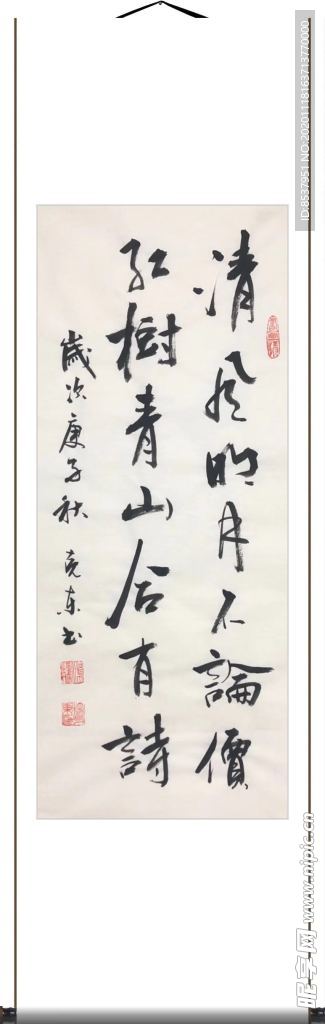 清风明月不論價
红樹青山合有詩
歲次庚子秋 克东书
ID:8537951 NO:20201118163713770000
昵享网 www.nipic.cn